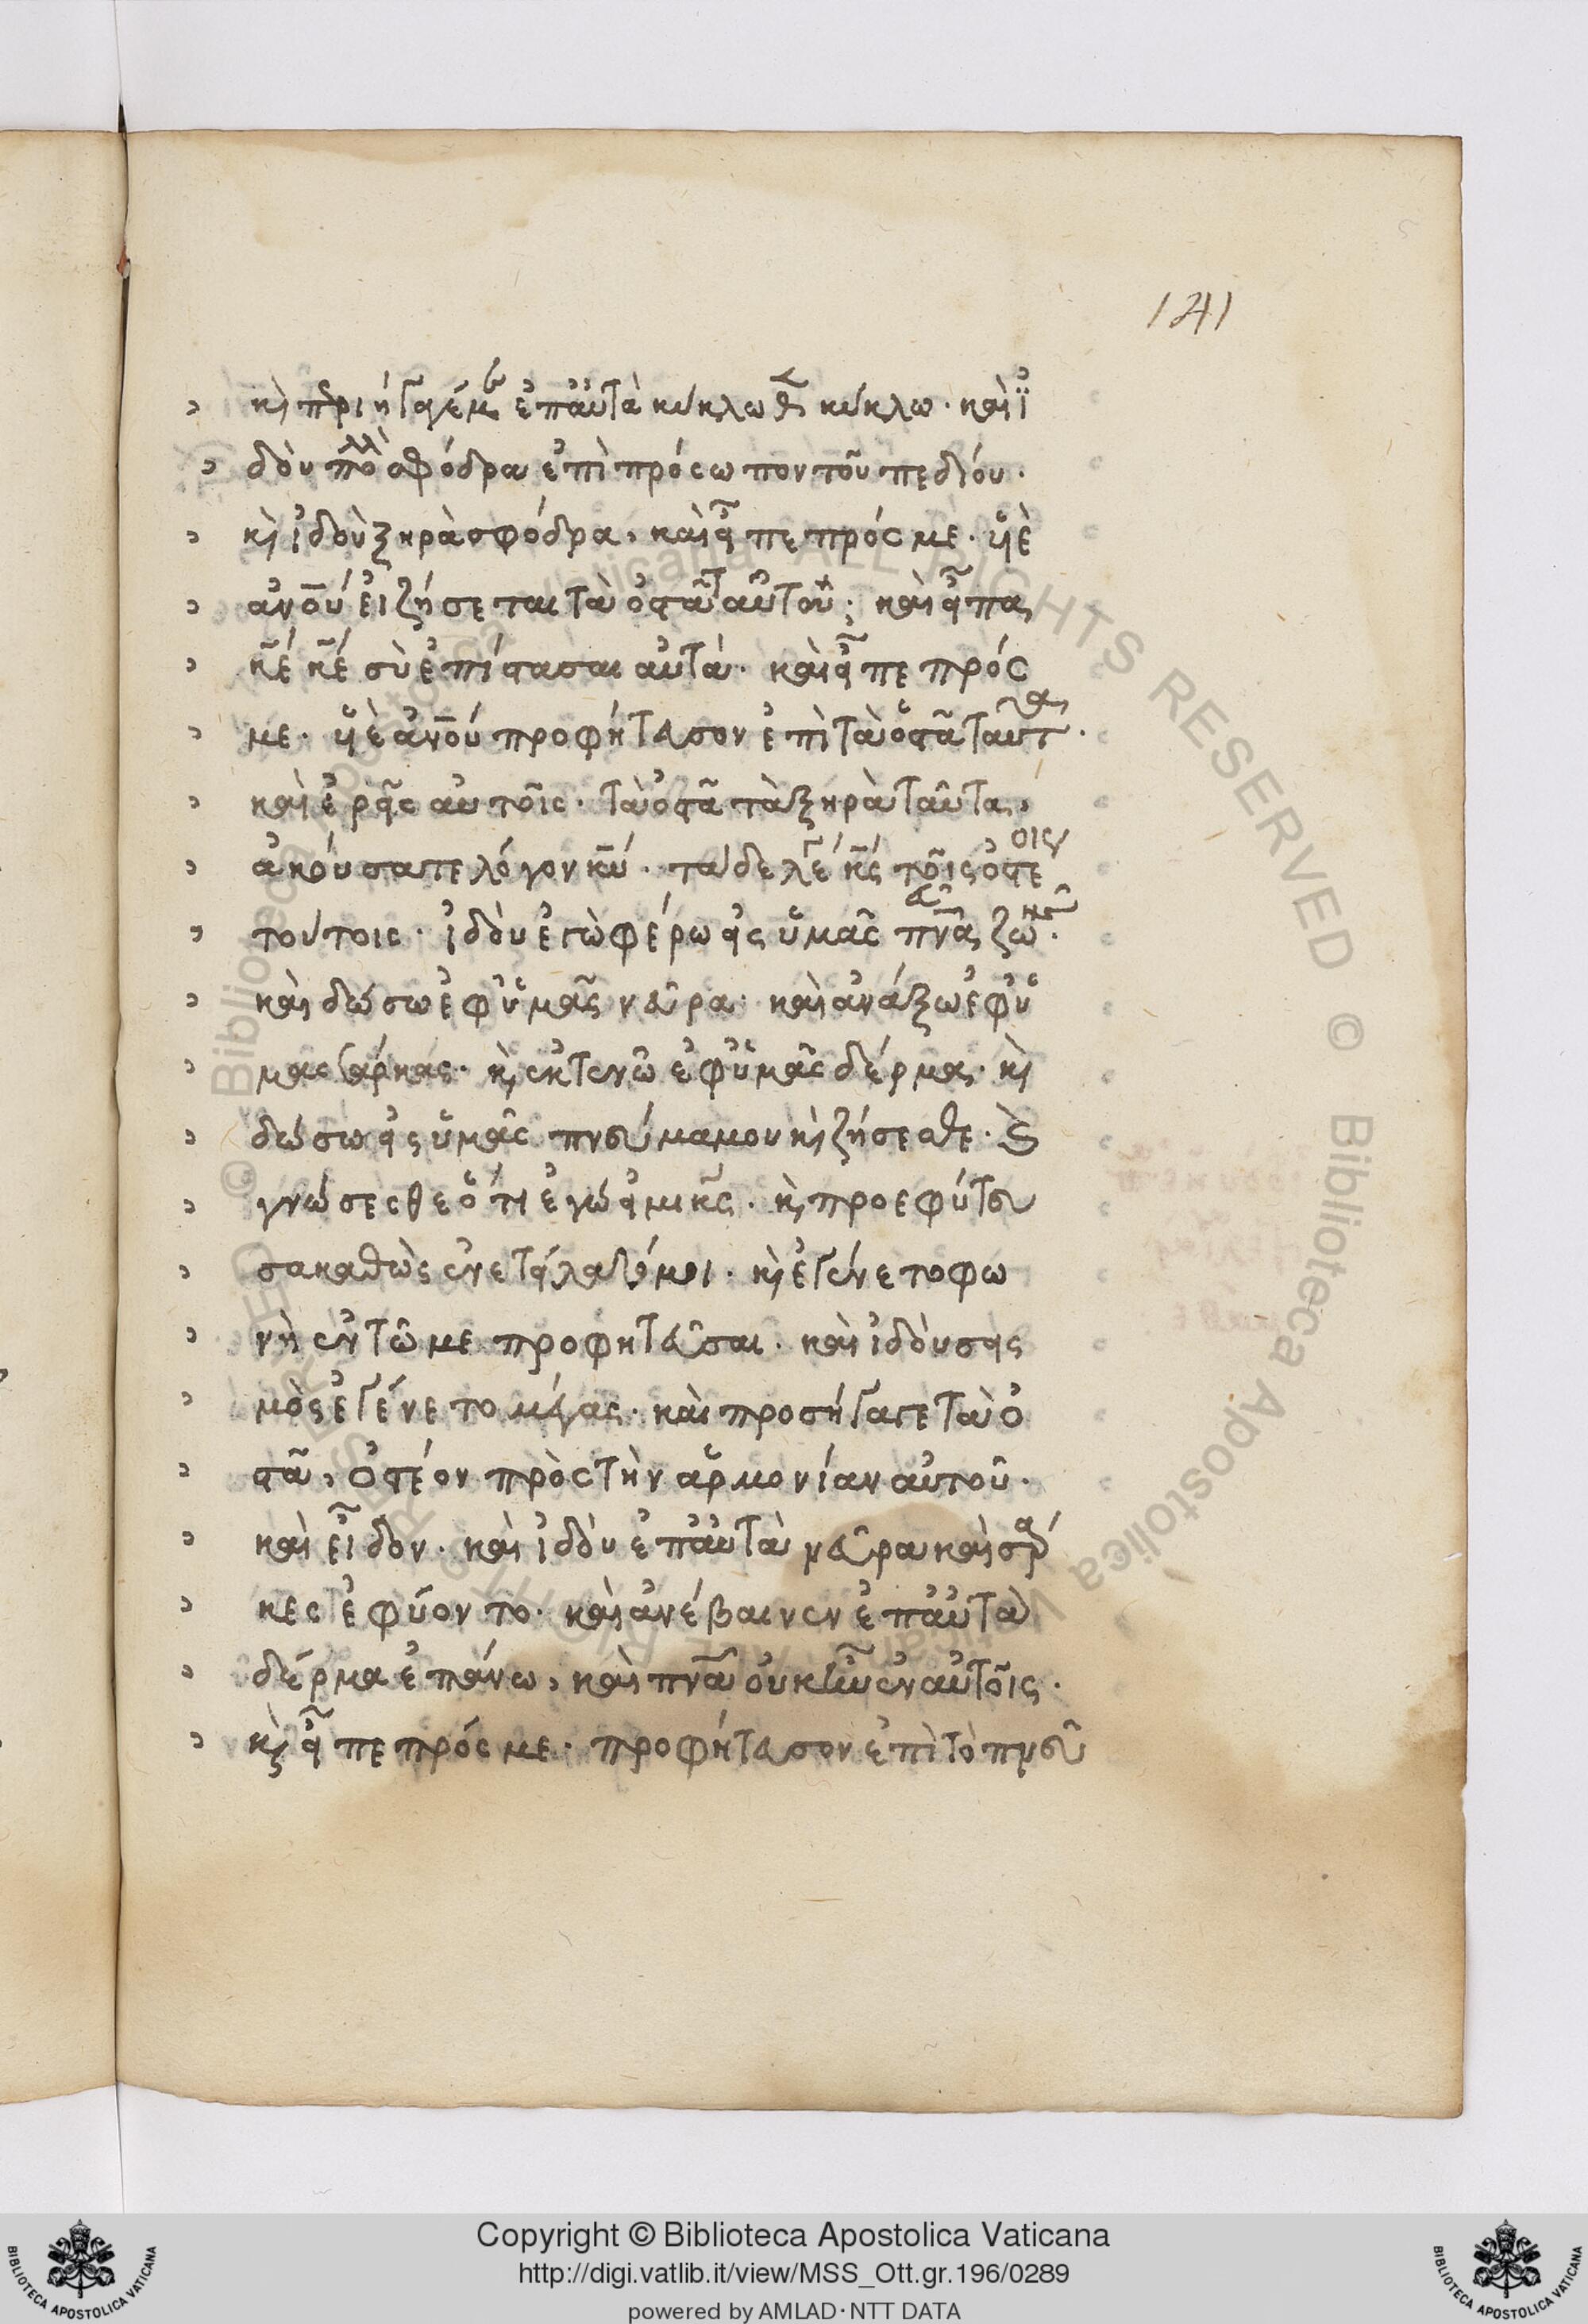 141
κὶ πριήγαγέ με ἐπ' αὐτὰ κύκλωθεν κύκλω· καὶ ἰ
δοὺ πολλὰ σφόδρα ἐπὶ πρόσωπον τοῦ πεδίου·
κὶ ἰδοὺ ξηρὰ σφόδρα, καὶ εἶπε πρός με· υἱὲ
ἀνου εἰ ζήσεται τὰ ὀστᾶ ταῦτα; καὶ εἶπα
κε κε σὺ ἐπίστασαι αὐτά· καὶ εἶπε πρός
με· υἱὲ ἀνου προφήτευσον ἐπὶ τὰ ὀστᾶ ταῦτα·
καὶ ἐρεῖς αὐτοῖς· τὰ ὀστᾶ τὰ ξηρὰ ταῦτα,
ἀκούσατε λόγον κυ· τάδε λέγει κς τοῖς ὀστέοις
τούτοις· ἰδοὺ ἐγὼ φέρω εἰς ὑμᾶς πνα ζωῆς·
καὶ δώσω ἐφ' ὑμᾶς νεῦρα· καὶ ἀνάξω ἐφ' ὑ
μας σάρκας· κὶ ἐκτενῶ ἐφ' ὑμᾶς δέρμα· κὶ
δώσω εἰς ὑμᾶς πνεύμα μου κὶ ζήσεσθε· κὶ
γνώσεσθε ὅτι ἐγώ εἰμι κς· κὶ προεφύτευ
σα καθὼς ἐνετείλατό μοι· κὶ ἐγένετο φω
νὴ ἐν τῶ με προφητεῦσαι· καὶ ἰδοὺ σεις
μὸς ἐγένετο μέγας· καὶ προσήγαγε τὰ ὀ
στᾶ, ὀστέον πρὸς τὴν ἁρμονίαν αὐτοῦ·
καὶ εἶδον· καὶ ἰδοὺ ἐπ' αὐτὰ νεῦρα καὶ σάρ
κες ἐφύοντο· καὶ ἀνέβαινεν ἐπ' αὐτὰ
δέρμα ἐπάνω, καὶ πνα οὐκ ἦν ἐν αὐτοῖς·
κὶ εἶπε πρός με· προφήτευσον ἐπὶ τὸ πνεῦ
Copyright © Biblioteca Apostolica Vaticana
http://digi.vatlib.it/view/MSS_Ott.gr.196/0289
powered by AMLAD·NTT DATA